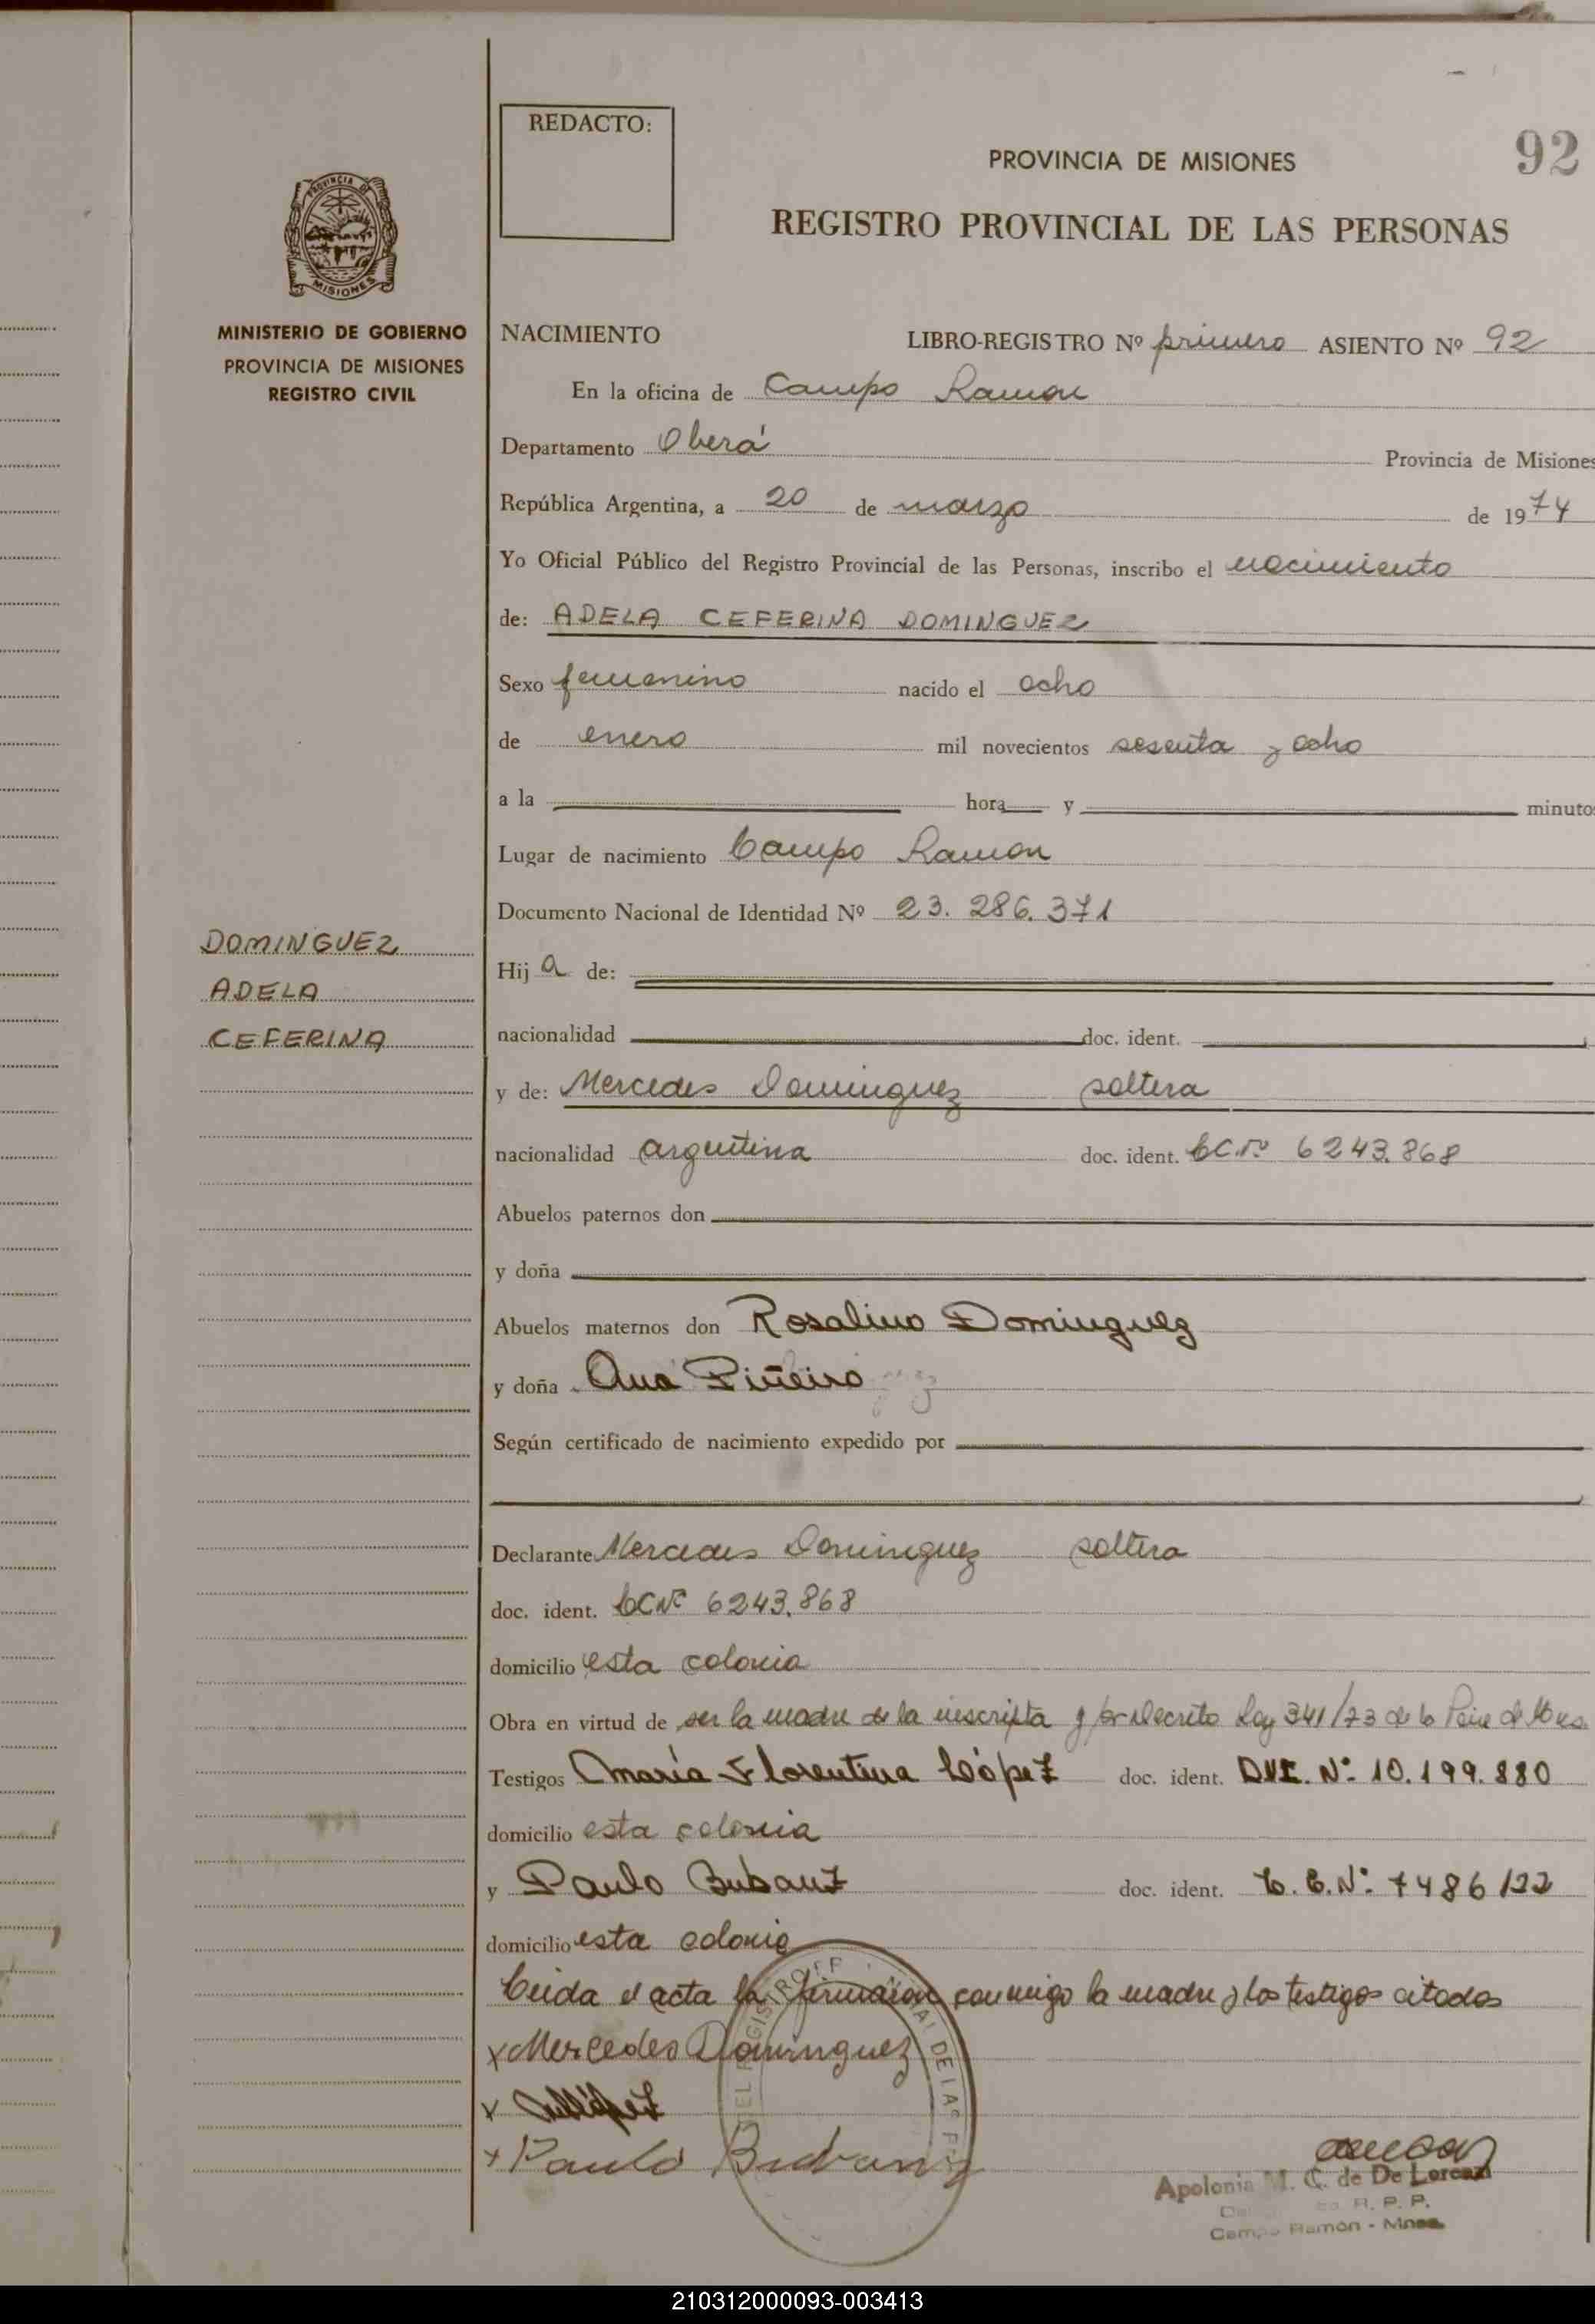 REDACTO:
PROVINCIA DE MISIONES
92
REGISTRO PROVINCIAL DE LAS PERSONAS
PROVINCIA DE
MISIONES
MINISTERIO DE GOBIERNO
PROVINCIA DE MISIONES
REGISTRO CIVIL
NACIMIENTO LIBRO-REGISTRO Nº primero ASIENTO Nº 92
En la oficina de Campo Ramon
Departamento Oberá Provincia de Misiones
República Argentina, a 20 de marzo de 1974
Yo Oficial Público del Registro Provincial de las Personas, inscribo el nacimiento
de: ADELA CEFERINA DOMINGUEZ
Sexo femenino nacido el ocho
de enero mil novecientos sesenta y ocho
a la hora y minutos
Lugar de nacimiento Campo Ramon
Documento Nacional de Identidad Nº 23.286.371
DOMINGUEZ
ADELA
CEFERINA
Hija de:
nacionalidad doc. ident.
y de: Mercedes Dominguez soltera
nacionalidad argentina doc. ident. CC.Nº 6243.868
Abuelos paternos don
y doña
Abuelos maternos don Rosalino Dominguez
y doña Ana Piñeiro
Según certificado de nacimiento expedido por
Declarante Mercedes Dominguez soltera
doc. ident. CCNº 6243.868
domicilio esta colonia
Obra en virtud de ser la madre de la inscripta y por Decreto Ley 341/73 de la
Testigos María Florentina López doc. ident. DNI. Nº 10.199.880
domicilio esta colonia
y Paulo Bubanz doc. ident. C.C.Nº 7486122
domicilio esta colonia
Leida el acta la firmaron conmigo la madre y los testigos citados
x Mercedes Dominguez
x
x Paulo Bubanz
Apolonia M. C. de De Lorenzi
R. P. P.
Campo Ramón - Mnes.
210312000093-003413